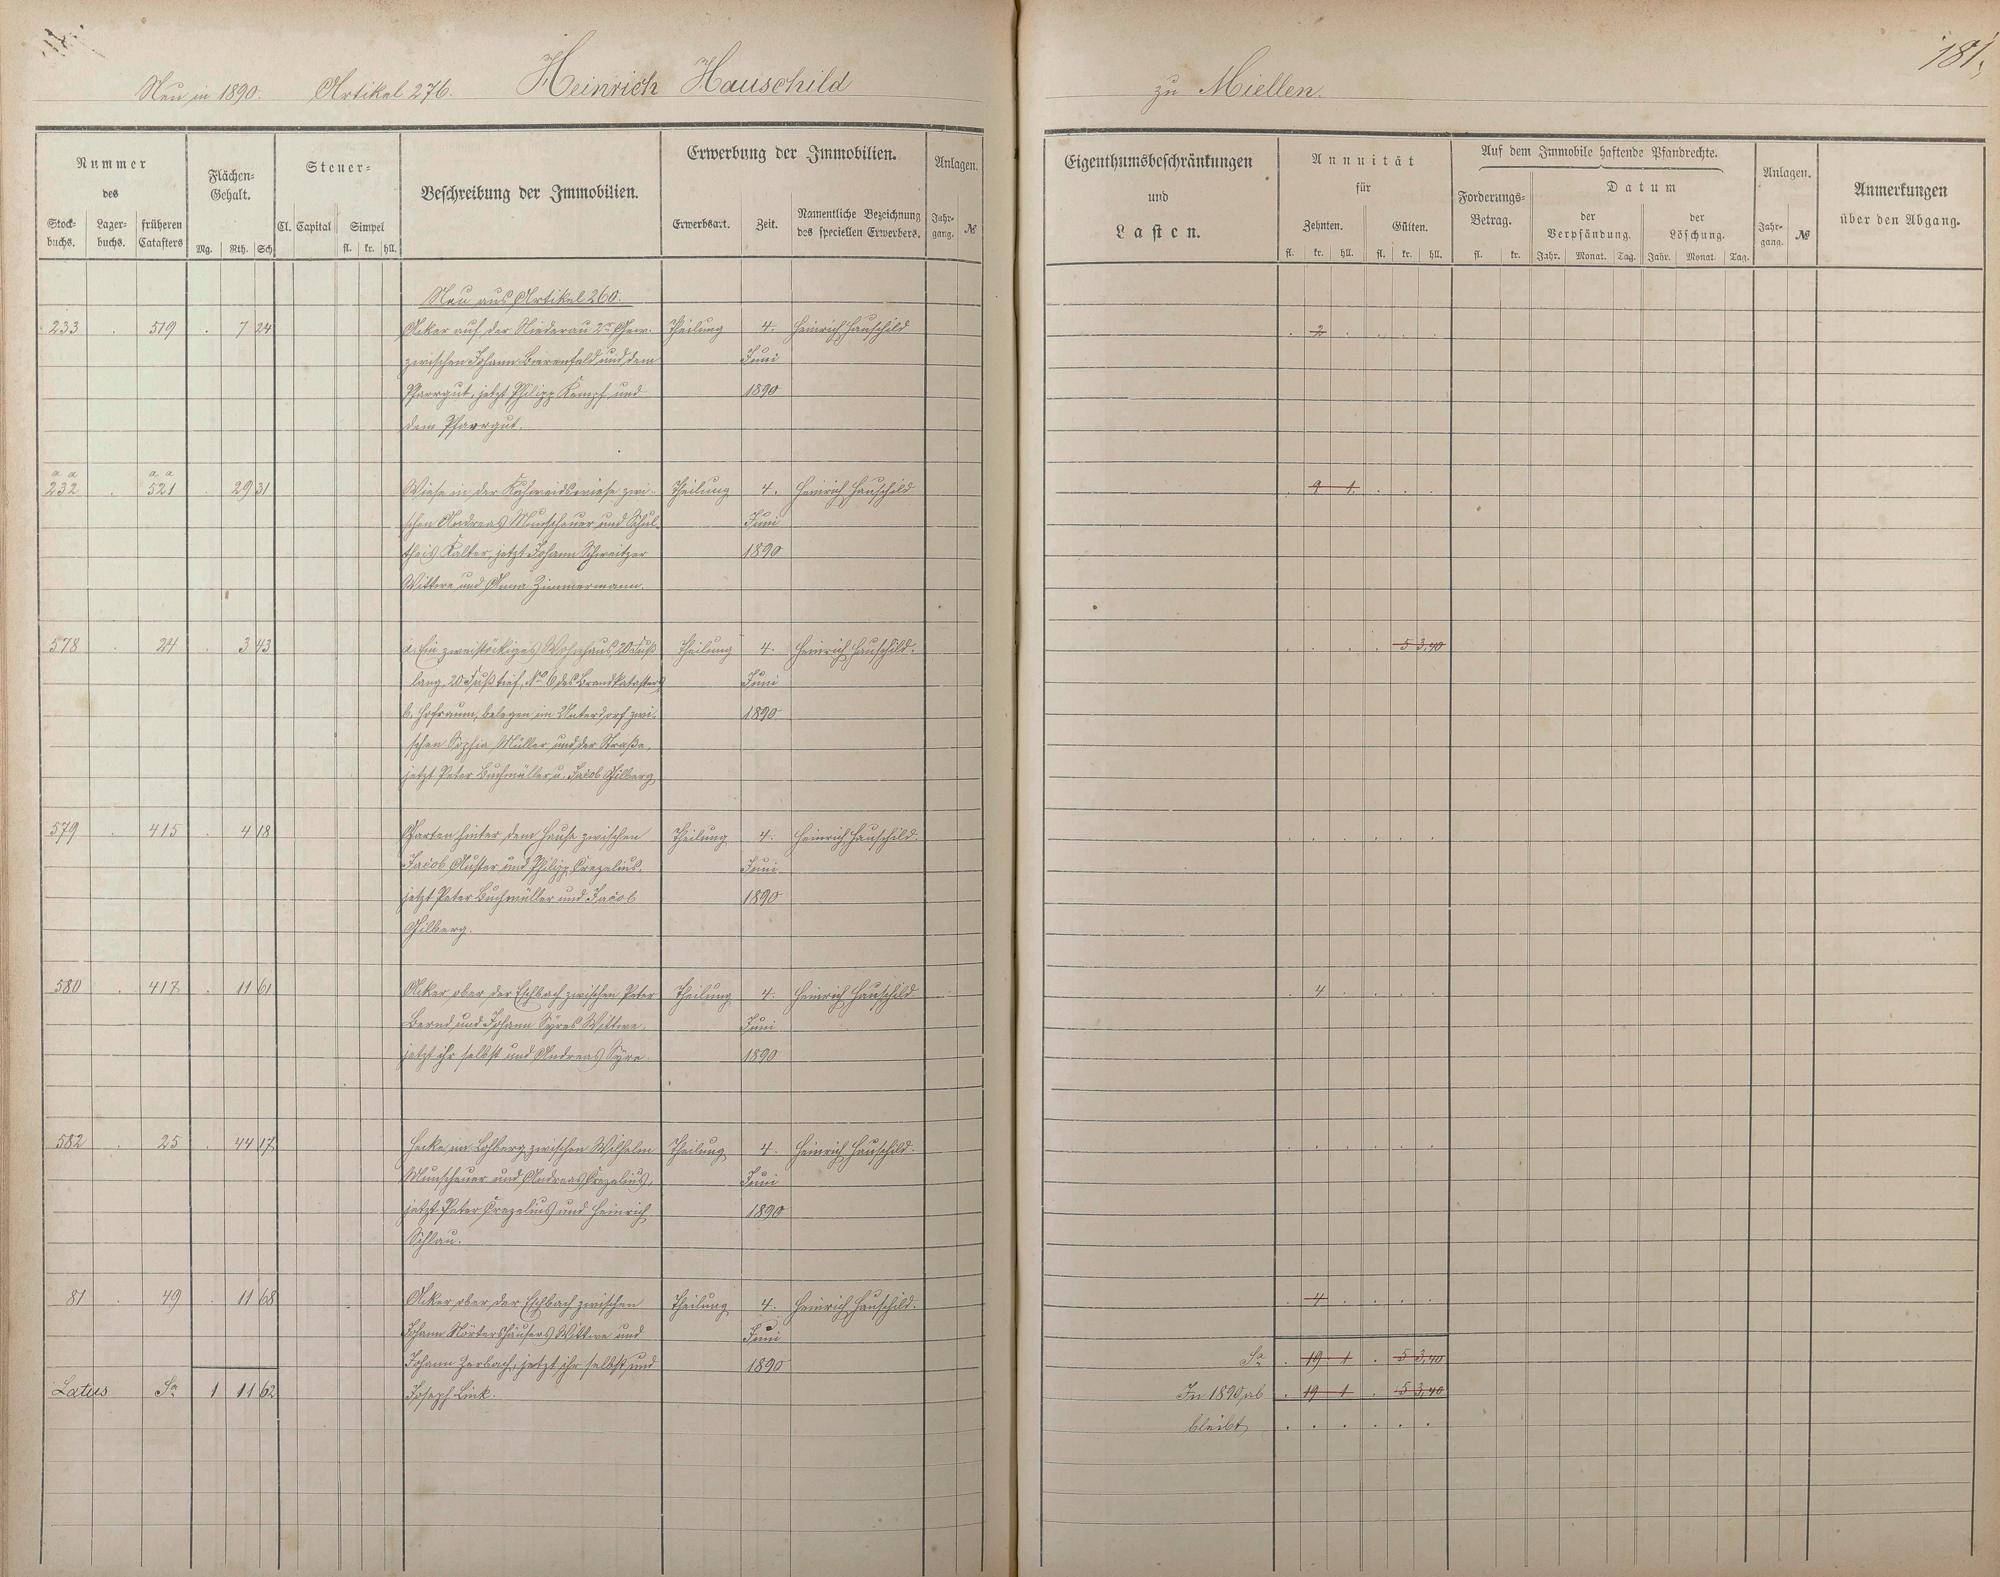 181.
Neu in 1890. Artikel 276. Heinrich Hauschild zu Miellen.
Nummer
des
Stock-
buchs.
Lager-
buchs.
früheren
Catasters
Flächen-
Gehalt.
Mg. Rth. Sch
Steuer-
Cl. Capital Simpel
fl. kr. hll.
Beschreibung der Immobilien.
Erwerbung der Immobilien.
Erwerbsart. Zeit.
Namentliche Bezeichnung
des speciellen Erwerbers.
Anlagen.
Jahr-
gang. №
Eigenthumsbeschränkungen
und
Lasten.
Annuität
für
Zehnten. Gülten.
fl. kr. hll. fl. kr. hll.
Auf dem Immobile haftende Pfandrechte.
Forderungs-
Betrag.
fl. kr.
Datum
der
Verpfändung.
Jahr. Monat. Tag.
der
Löschung.
Jahr. Monat. Tag.
Anlagen.
Jahr-
gang. №
Anmerkungen
über den Abgang.
Neu aus Artikel 260.
233 . 519 . 7 24 Acker auf der Niederau 2r Gew. Theilung 4. Heinrich Hauschild . 2 . . . .
zwischen Johann Bärenfeld und dem Juni
Pfarrgut, jetzt Philipp Kempf und 1890
dem Pfarrgut.
a a a a
232 . 521 . 29 31 Wiese in der zwi- Theilung 4. Heinrich Hauschild . 9 1 . . .
schen Andreas Munscheuer und Schul- Juni
theis Kalter, jetzt Johann Schweitzer 1890
Wittwe und Anna Zimmermann.
578 . 24 . 3 43 a. Ein zweistöckiges Wohnhaus 20 Fuß Theilung 4. Heinrich Hauschild. . . . . 5 3,40
lang, 20 Fuß tief, No 6 des Brandkatasters Juni
b. Hofraum, belegen im Unterdorf zwi- 1890
schen Sophia Müller und der Straße,
jetzt Peter Buchmüller u. Jacob Hilberg
579 . 415 . 4 18 Garten hinter dem Hause zwischen Theilung 4. Heinrich Hauschild. . . . . . .
Jacob Auster und Philipp Crezelius, Juni
jetzt Peter Buchmüller und Jacob 1890
Hilberg.
580 . 417 . 11 61 Acker ober der Eschbach zwischen Peter Theilung 4. Heinrich Hauschild . 4 . . . .
Bernd und Johann Syres Wittwe, Juni
jetzt ihr selbst und Andreas Syre. 1890
582 . 25 . 44 17 Hecke im Lohberg zwischen Wilhelm Theilung 4. Heinrich Hauschild. . . . . . .
Munscheuer und Andreas Crezelius, Juni
jetzt Peter Crezelius und Heinrich 1890
Schlau.
81 . 49 . 11 68 Acker ober der Eschbach zwischen Theilung 4. Heinrich Hauschild. 4 . . . .
Johann Mörtershäusers Wittwe und Juni
Johann Zerbach, jetzt ihr selbst und 1890 Sa . 19 1 . 5 3,40
Latus Sa 1 11 62 Joseph Link. In 1890 ab . 19 1 . 5 3,40
bleibt . . . . . .